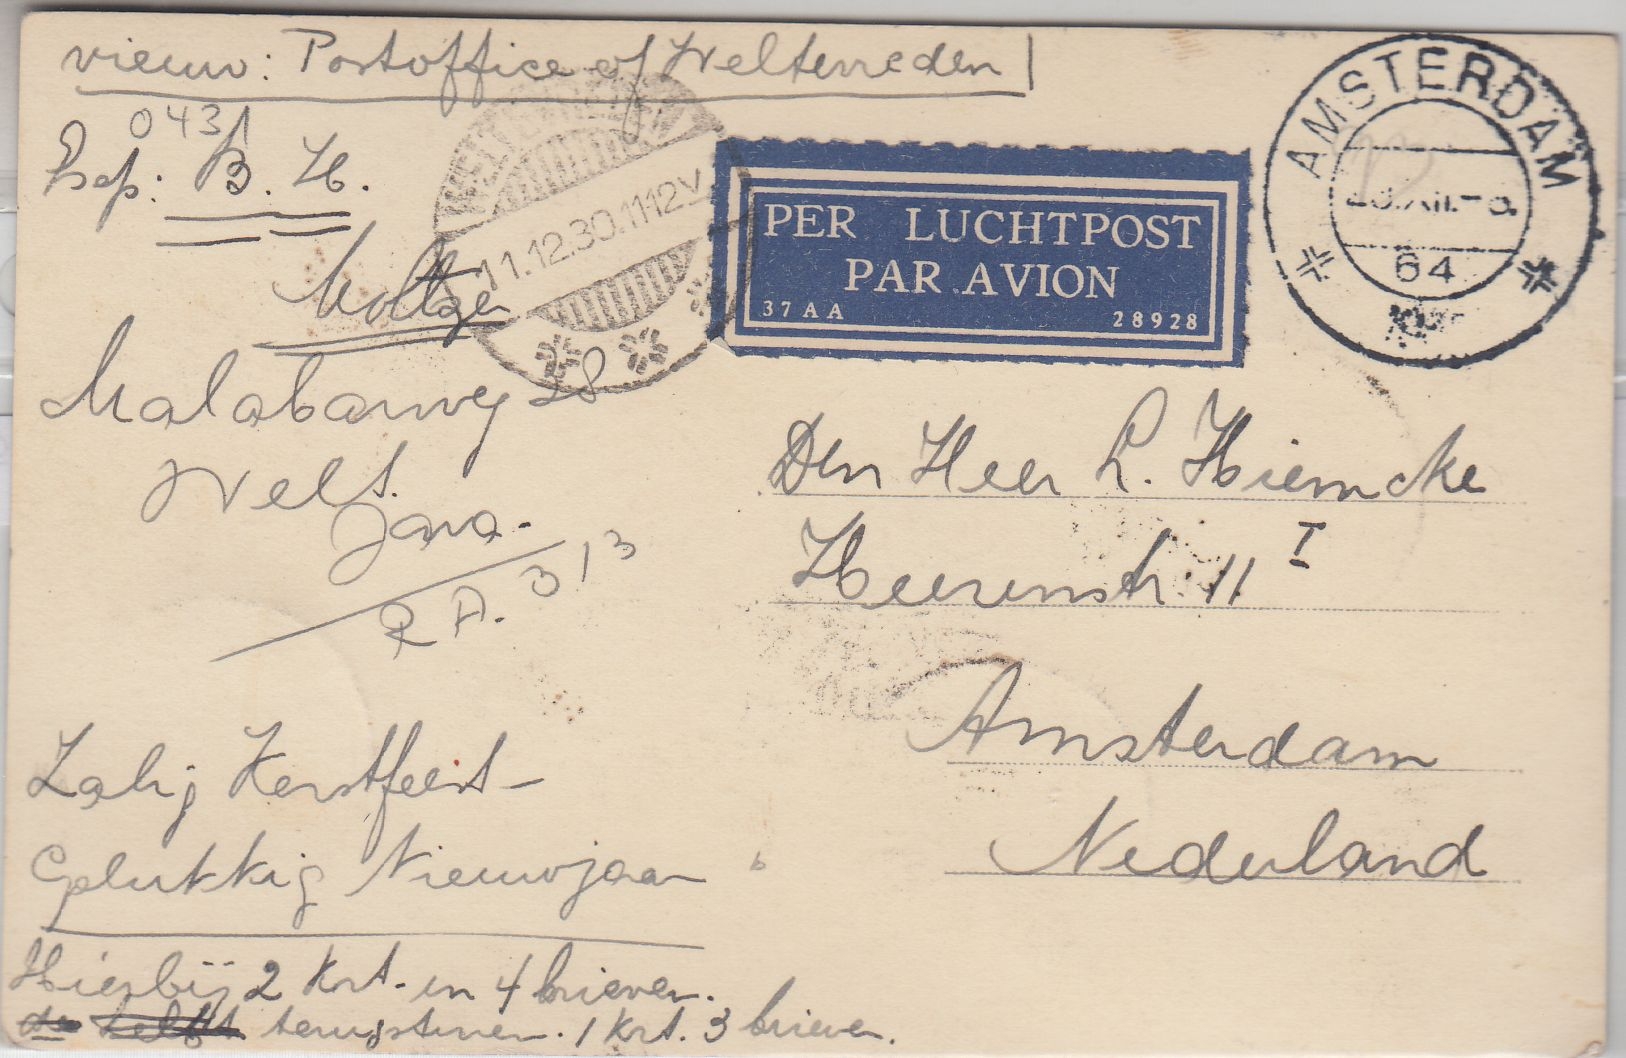 vieuw: Postoffice of Weltevreden
043
B. H.
Moltzer
Malabarweg 28
Welt.
Java.
R A. 313
Zalig Kerstfeest -
Gelukkig Nieuwjaar
Hierbij 2 Krt. en 4 brieven.
de helft terugsturen. 1 Krt. 3 brieven.
11.12.30.11-12V
PER LUCHTPOST
PAR AVION
37 AA 28928
AMSTERDAM
64
Den Heer L. Hiemcke
Heerenstr. 11 I
Amsterdam
Nederland